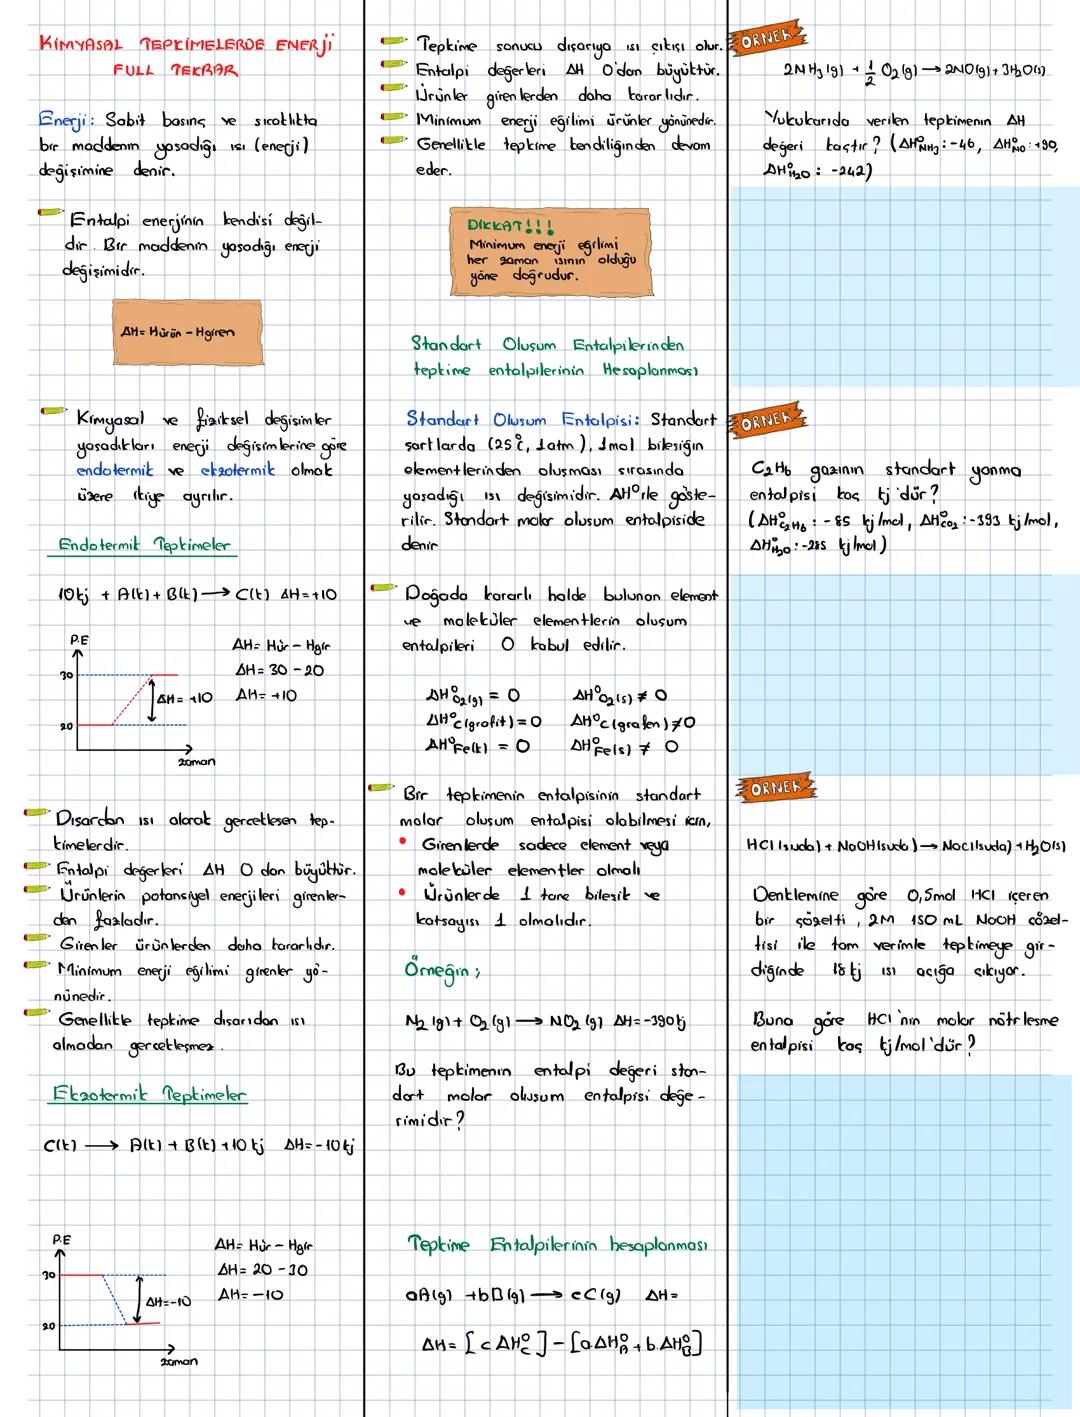 KİMYASAL TEPKİMELERDE ENERJİ
FULL TEKRAR
Enerji: Sabit basınç ve sıcaklıkta
bir maddenin yaşadığı ısı (enerji)
değişimine denir.
Entalpi enerjinin kendisi değil-
dir. Bir maddenin yaşadığı enerji
değişimidir.
ΔH= Hürün - Hgiren
Kimyasal ve fiziksel değişimler
yaşadıkları enerji değişimlerine göre
endotermik ve ekzotermik olmak
üzere ikiye ayrılır.
Endotermik Tepkimeler
10kj + A(k) + B(k) → C(k) ΔH=+10
P.E
30
20
ΔH= +10
zaman
ΔH= Hür - Hgir
ΔH= 30 - 20
ΔH= +10
Dısardan ısı alarak gerçekleşen tep-
kimelerdir.
Entalpi değerleri ΔH 0 dan büyüktür.
Ürünlerin potansiyel enerjileri girenler-
den fazladır.
Girenler ürünlerden daha kararlıdır.
Minimum enerji eğilimi girenler yö-
nünedir.
Genellikle tepkime dışarıdan ısı
almadan gerçekleşmez.
Ekzotermik Tepkimeler
C(k) → A(k) + B(k) +10 kj ΔH=-10kj
P.E
30
20
ΔH=-10
zaman
ΔH= Hür - Hgir
ΔH= 20 - 30
ΔH= -10
Tepkime sonucu dışarıya ısı çıkışı olur.
Entalpi değerleri ΔH 0'dan büyüktür.
Ürünler girenlerden daha kararlıdır.
Minimum enerji eğilimi ürünler yönünedir.
Genellikle tepkime kendiliğinden devam
eder.
DİKKAT!!!
Minimum enerji eğilimi
her zaman ısının olduğu
yöne doğrudur.
Standart Oluşum Entalpilerinden
tepkime entalpilerinin Hesaplanması
Standart Olusum Entalpisi: Standart
şartlarda (25°C, 1atm), 1mol bileşiğin
elementlerinden oluşması sırasında
yaşadığı ısı değişimidir. ΔH°ile göste-
rilir. Standart molar olusum entalpiside
denir
Doğada kararlı halde bulunan element
ve moleküler elementlerin oluşum
entalpileri 0 kabul edilir.
ΔH°O₂(g) = 0 ΔH°O₂(s) ≠ 0
ΔH°C(grafit)=0 ΔH°C(grafen)≠0
ΔH°Fe(k) = 0 ΔH°Fe(s) ≠ 0
Bir tepkimenin entalpisinin standart
molar oluşum entalpisi olabilmesi için,
• Girenlerde sadece element veya
moleküler elementler olmalı
• Ürünlerde 1 tane bileşik ve
katsayısı 1 olmalıdır.
Örneğin;
N₂(g) + O₂(g) → NO₂(g) ΔH=-390kj
Bu tepkimenin entalpi değeri stan-
dart molar oluşum entalpisi değe-
rimidir?
Tepkime Entalpilerinin hesaplanması
aA(g) +bB(g) → cC(g) ΔH=
ΔH= [c ΔH°C] - [a.ΔH°A + b.ΔH°B]
ÖRNEK
2NH₃(g) + 1/2 O₂(g) → 2NO(g) + 3H₂O(s)
Yukukarıda verilen tepkimenin ΔH
değeri kaçtır? (ΔH°NH₃:-46, ΔH°NO:+90,
ΔH°H₂O : -242)
ÖRNEK
C₂H₆ gazının standart yanma
entalpisi kaç kj'dür?
(ΔH°C₂H₆ : -85 kj/mol, ΔH°CO₂:-393 kj/mol,
ΔH°H₂O:-285 kj/mol)
ÖRNEK
HCl(suda) + NaOH(suda) → NaCl(suda) + H₂O(s)
Denklemine göre 0,5mol HCl içeren
bir çözelti, 2M 150 mL NaOH çözel-
tisi ile tam verimle tepkimeye gir-
diğinde 18 kj ısı açığa çıkıyor.
Buna göre HCl'nin molar nötrleşme
entalpisi kaç kj/mol'dür?